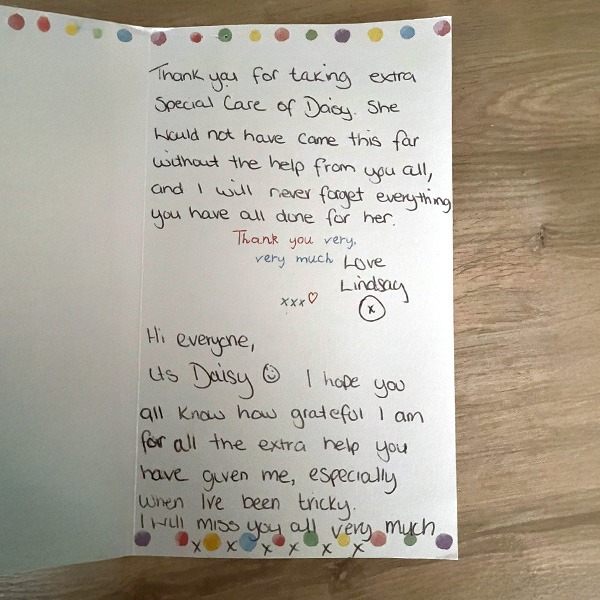 Thank you for taking extra
Special Care of Daisy. She
would not have came this far
without the help from you all,
and I will never forget everything
you have all done for her.
Thank you very,
very much Love
Lindsay
xxx♡
x
Hi everyone,
its Daisy ☺ I hope you
all know how grateful I am
for all the extra help you
have given me, especially
when Ive been tricky.
I will miss you all very much
x x x x x x